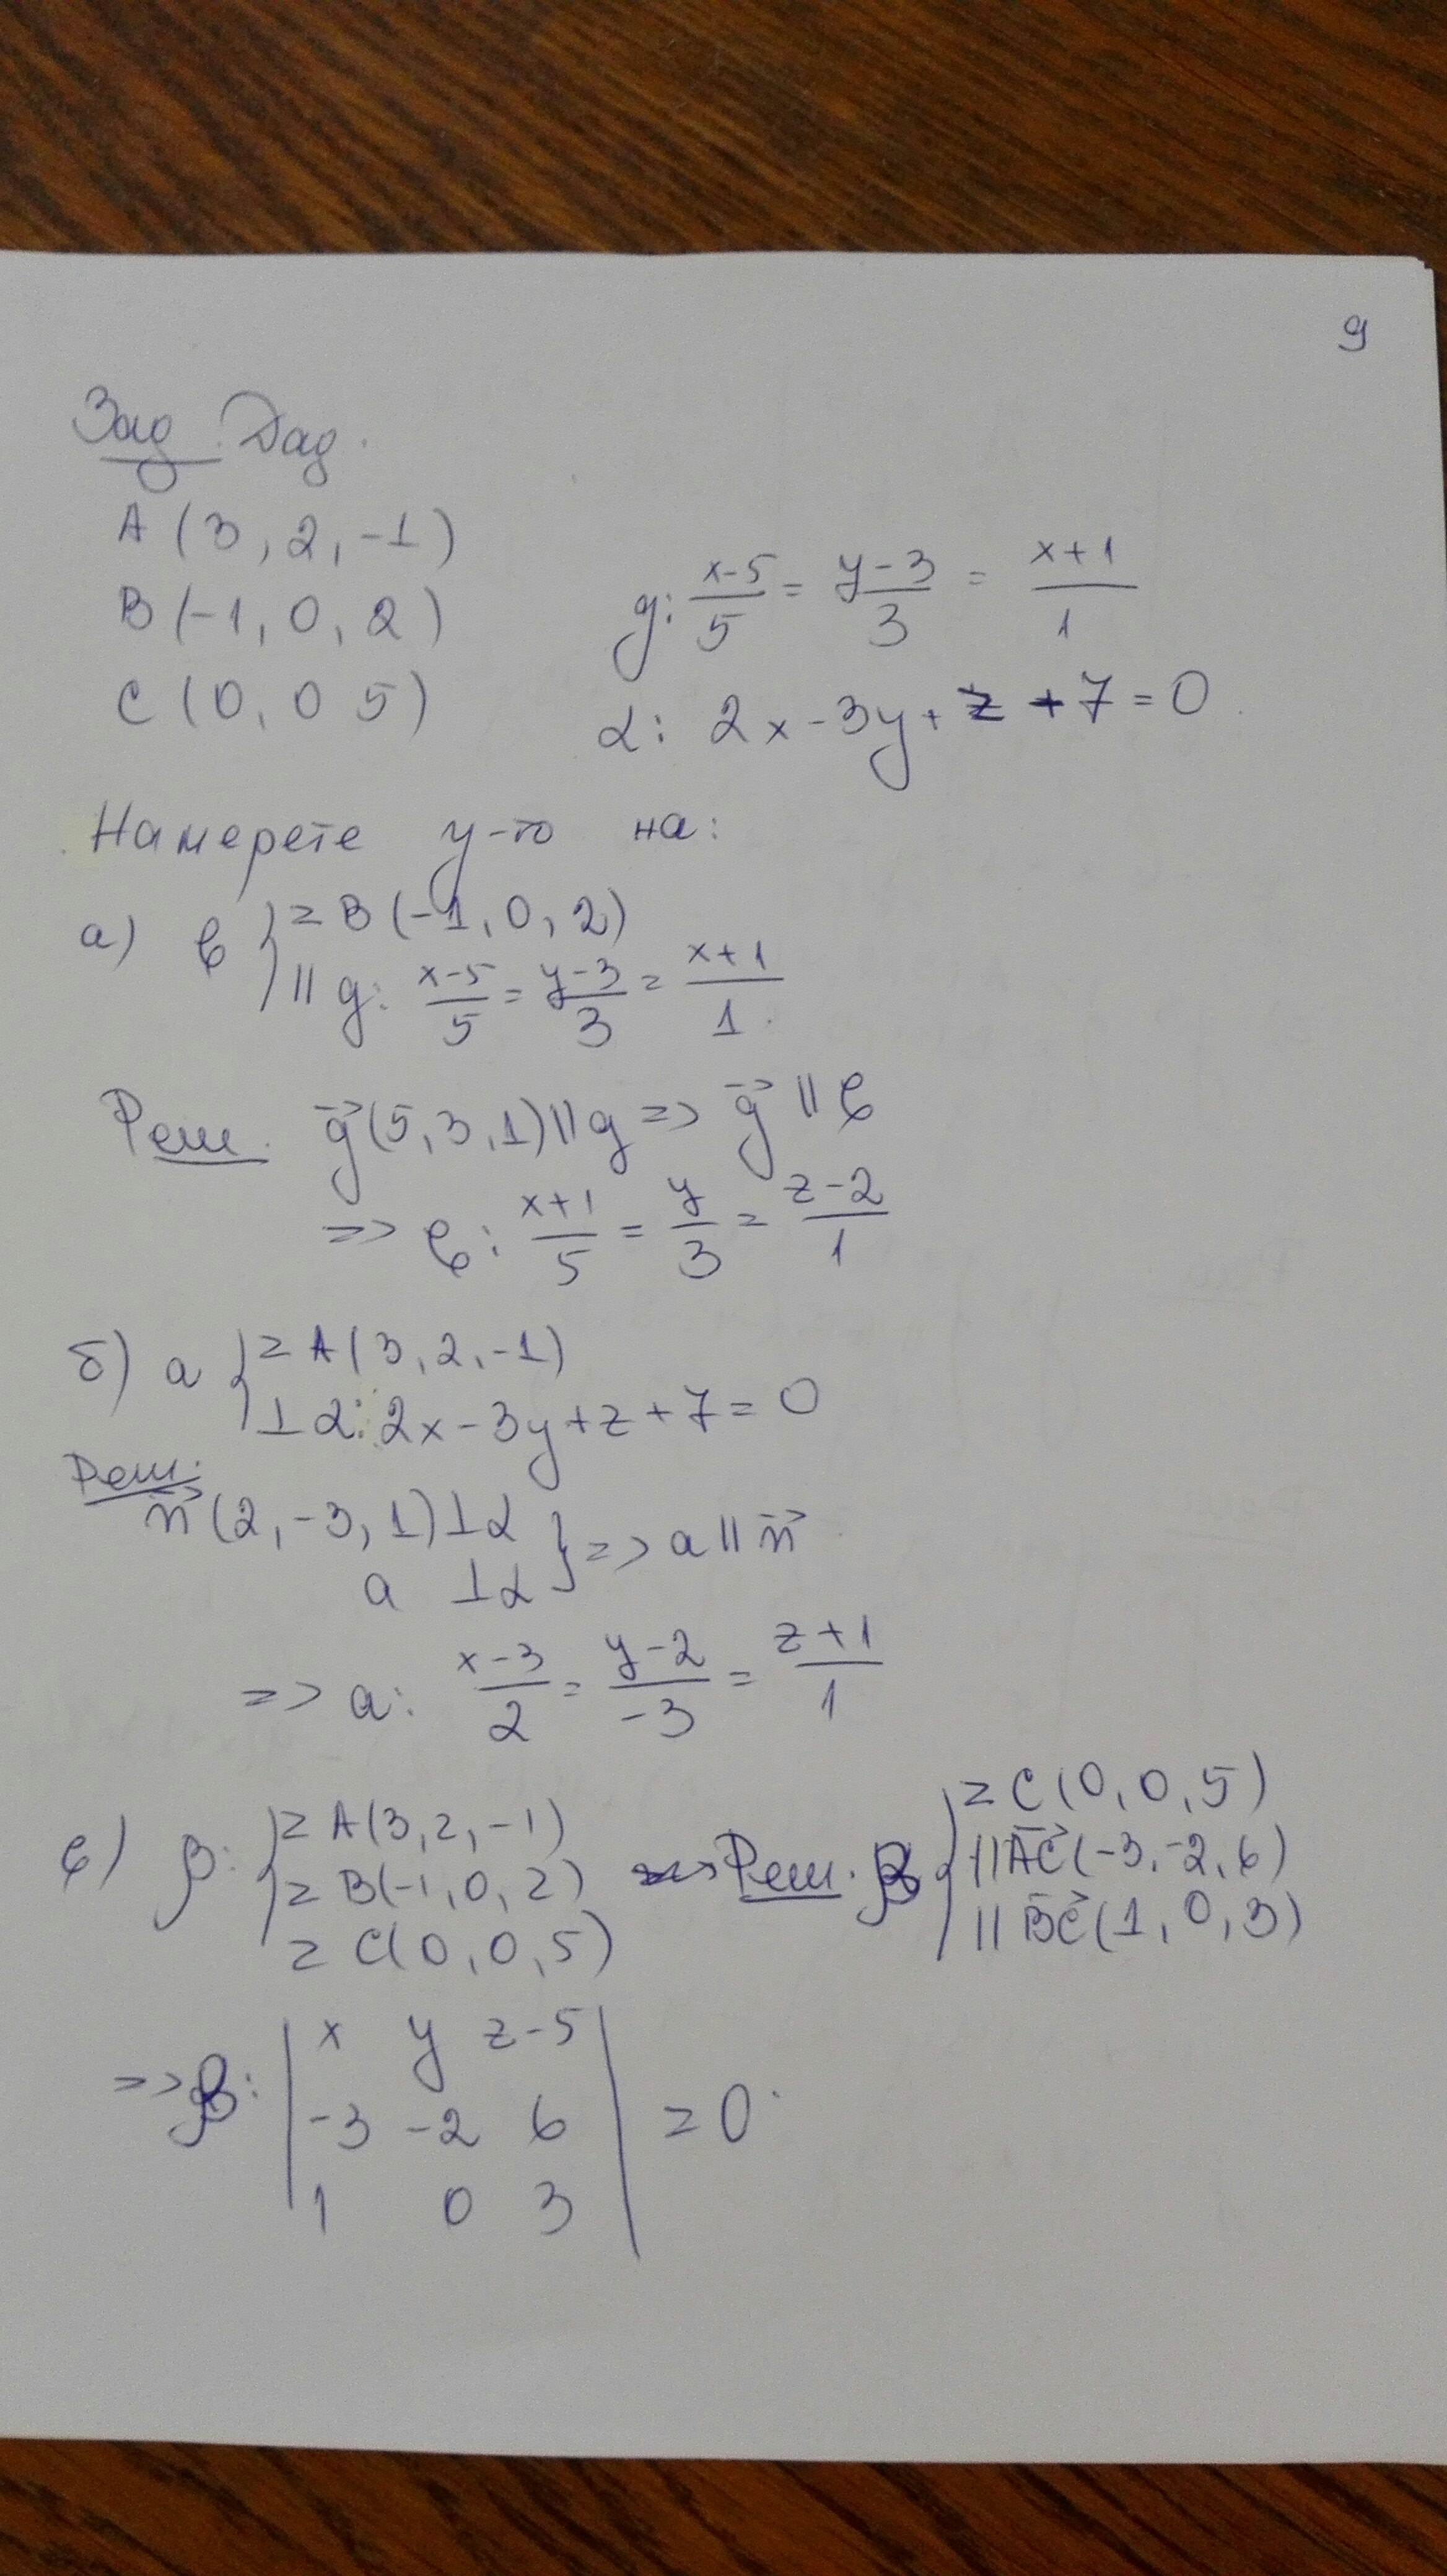 9
Зад. Дад.
A (3, 2, -1)
B (-1, 0, 2)
C (0, 0 5)
g: (x-5)/5 = (y-3)/3 = (x+1)/1
α: 2x - 3y + z + 7 = 0
Намерете у-то на:
а) b { z B (-1, 0, 2)
|| g: (x-5)/5 = (y-3)/3 = (x+1)/1
Реш. g⃗(5, 3, 1) || g => g⃗ || b
=> b: (x+1)/5 = y/3 = (z-2)/1
б) a { z A (3, 2, -1)
⊥ α: 2x - 3y + z + 7 = 0
Реш.
n⃗ (2, -3, 1) ⊥ α } => a || n⃗
a ⊥ α
=> a: (x-3)/2 = (y-2)/-3 = (z+1)/1
в) β: { z A(3, 2, -1)
z B(-1, 0, 2)
z C(0, 0, 5)
Реш. β { z C (0, 0, 5)
|| AC⃗ (-3, -2, 6)
|| BC⃗ (1, 0, 3)
=> β: | x y z-5 |
| -3 -2 6 | = 0
| 1 0 3 |